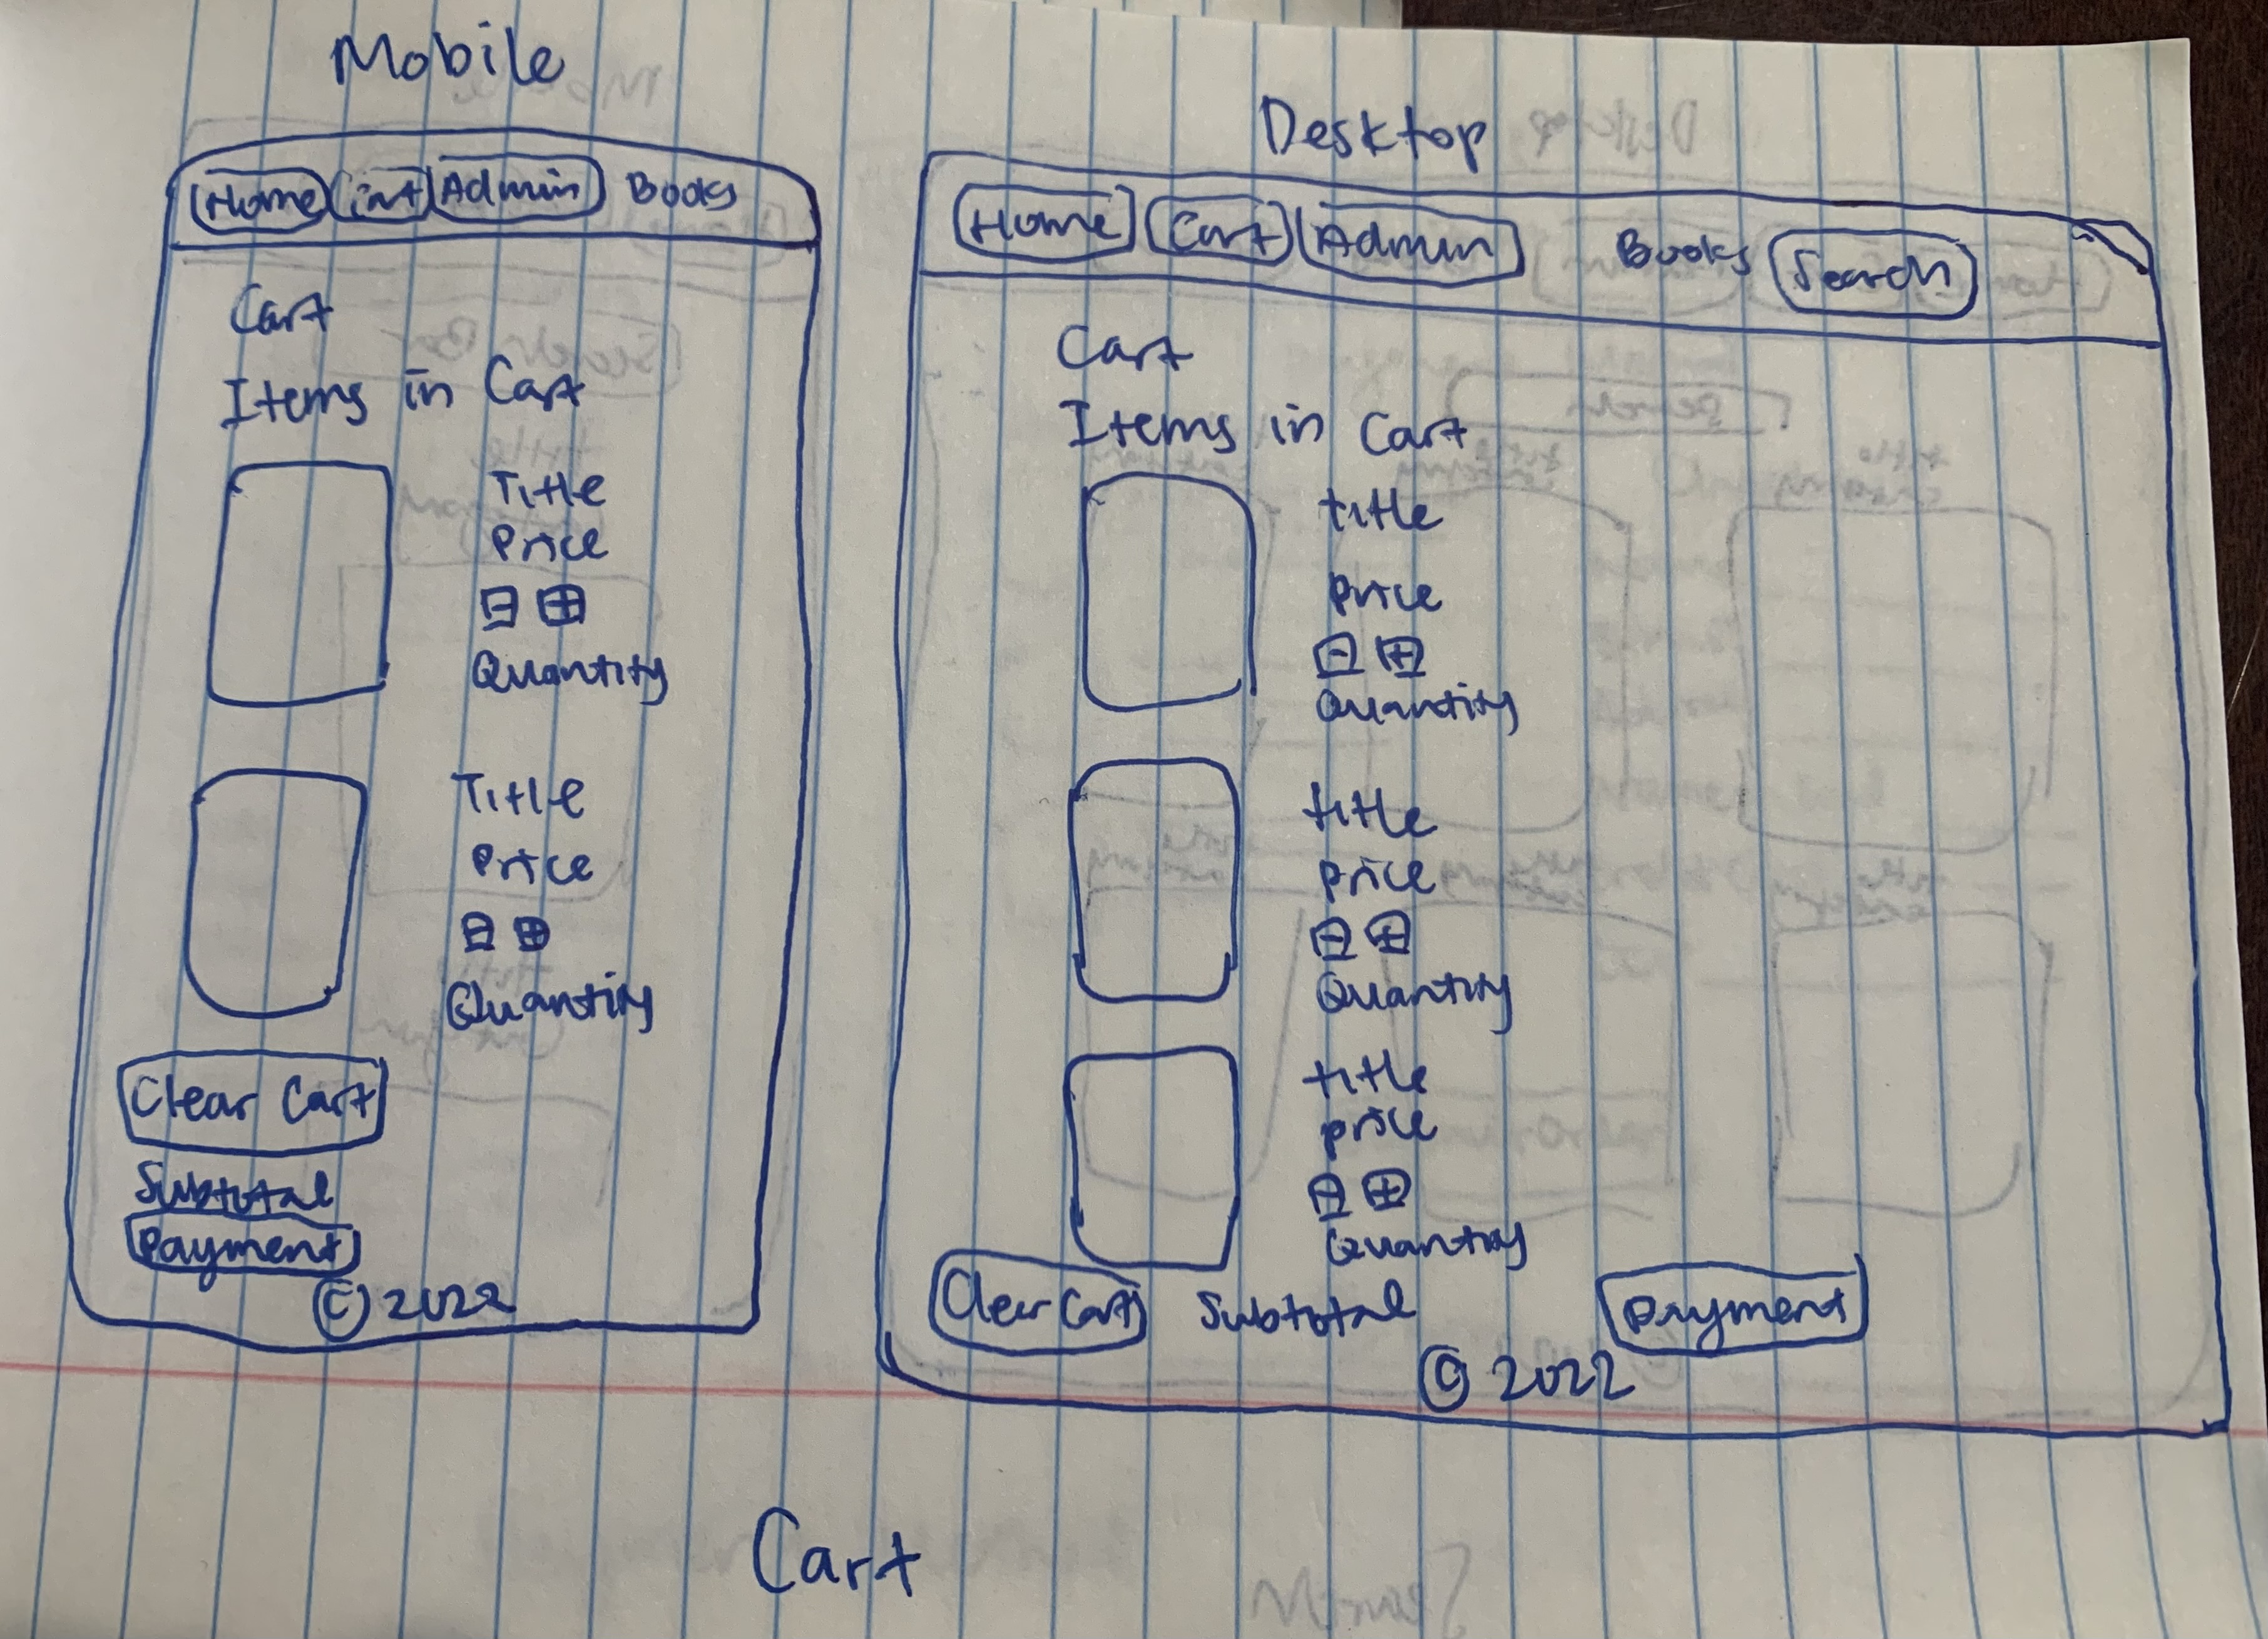 Mobile
Home Admin Books
Cart
Items in Cart
Title
Price
- +
Quantity
Title
Price
- +
Quantity
Clear Cart
Subtotal
Payment
© 2022
Desktop
Home Cart Admin Books Search
Cart
Items in Cart
title
price
- +
Quantity
title
price
- +
Quantity
title
price
- +
Quantity
Clear Cart Subtotal Payment
© 2022
Cart